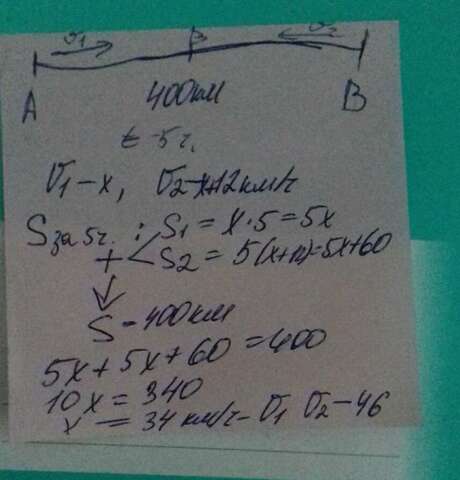 v1 B v2
A 400км B
t - 5 ч.
v1 - x, v2 - x+12 км/ч
S за 5ч. : S1 = x·5 = 5x
+ S2 = 5(x+12) = 5x+60
S = 400 км
5x + 5x + 60 = 400
10x = 340
x = 34 км/ч - v1 v2 - 46